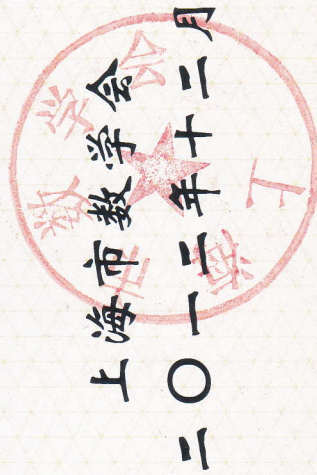 上海市数学会
二〇一二年十二月
上海市数学会